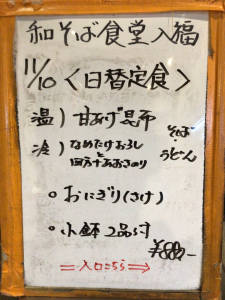 和そば食堂入福
11/10 <日替定食>
温) 甘あげ昆布
冷) なめたけおろしと四万十あおさのり
そば・うどん
○ おにぎり(さけ)
○ 小鉢 2品付
¥880-
=入口こちら⇒